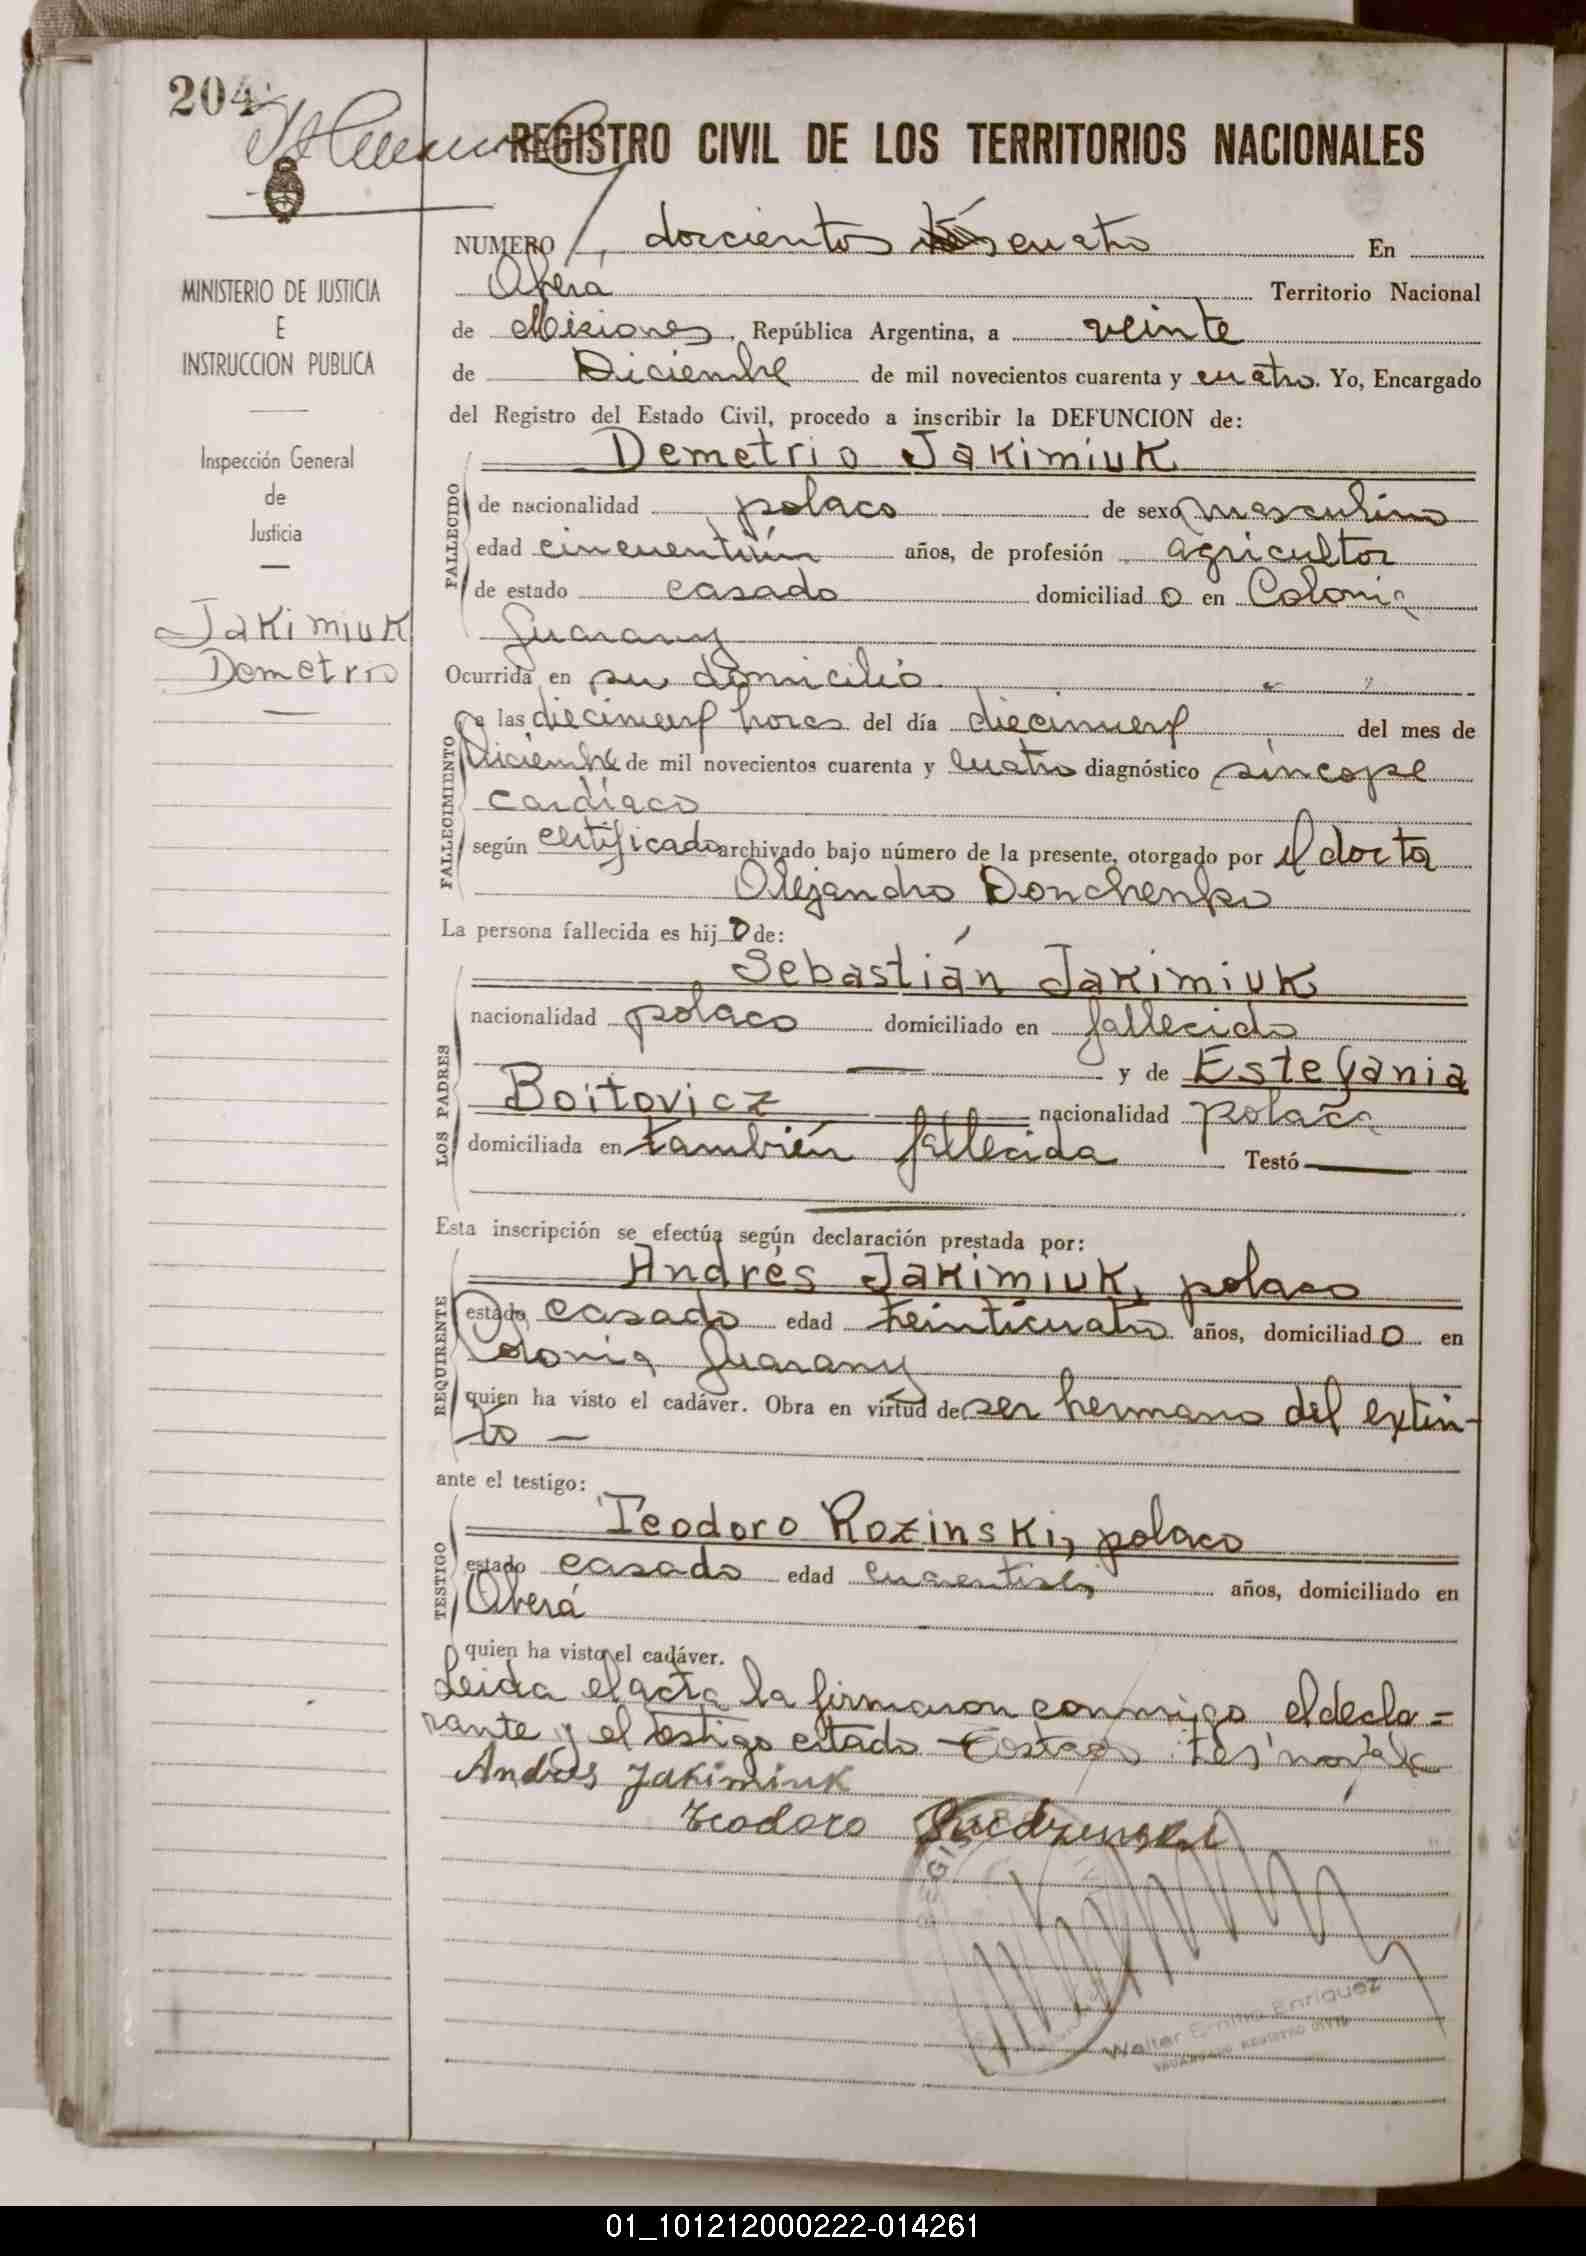 204
REGISTRO CIVIL DE LOS TERRITORIOS NACIONALES
MINISTERIO DE JUSTICIA
E
INSTRUCCION PUBLICA
Inspección General
de
Justicia
Jakimiuk
Demetrio
NUMERO doscientos cuatro En
Oberá Territorio Nacional
de Misiones, República Argentina, a veinte
de Diciembre de mil novecientos cuarenta y cuatro. Yo, Encargado
del Registro del Estado Civil, procedo a inscribir la DEFUNCION de:
Demetrio Jakimiuk
FALLECIDO
de nacionalidad polaco de sexo masculino
edad cincuentiún años, de profesión agricultor
de estado casado domiciliad o en Colonia
Guarany
Ocurrida en su domicilio
FALLECIMIENTO
a las diecinueve horas del día diecinueve del mes de
Diciembre de mil novecientos cuarenta y cuatro diagnóstico síncope
cardíaco
según certificado archivado bajo número de la presente, otorgado por el doctor
Alejandro Donchenko
La persona fallecida es hij o de:
LOS PADRES
Sebastián Jakimiuk
nacionalidad polaco domiciliado en fallecido
y de Estefania
Boitovicz nacionalidad polaca
domiciliada en también fallecida Testó
Esta inscripción se efectúa según declaración prestada por:
REQUIRENTE
Andrés Jakimiuk, polaco
estado casado edad treinticuatro años, domiciliad o en
Colonia Guarany
quien ha visto el cadáver. Obra en virtud de ser hermano del extin-
to —
ante el testigo:
TESTIGO
Teodoro Rozinski, polaco
estado casado edad años, domiciliado en
Oberá
quien ha visto el cadáver.
Leida el acta la firmaron conmigo el decla=
rante y el testigo citado
Andres Jakimiuk
Teodoro
Walter Emilio Enriquez
ENCARGADO REGISTRO CIVIL
01_101212000222-014261